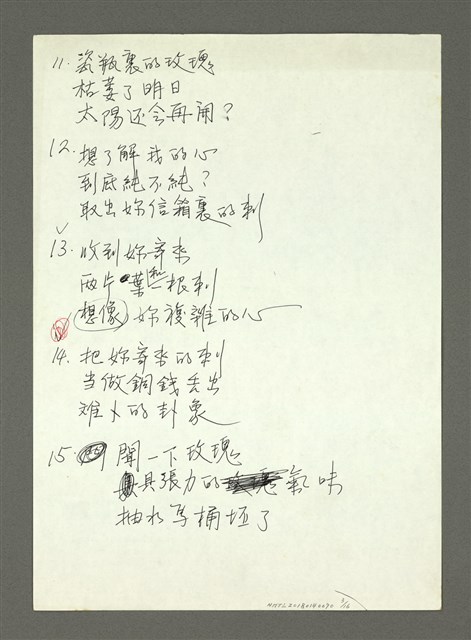 11. 瓷瓶裏的玫瑰
枯萎了明日
太陽还会再開？
12. 想了解我的心
到底純不純？
取出妳信箱裏的刺
13. 收到妳寄來
兩片葉和一根刺
想像妳複雜的心
14. 把妳寄來的刺
当做銅錢丢出
难卜的卦象
15. 聞一下玫瑰
具張力的氣味
抽水馬桶坯了
NMTL20180140090 3/16